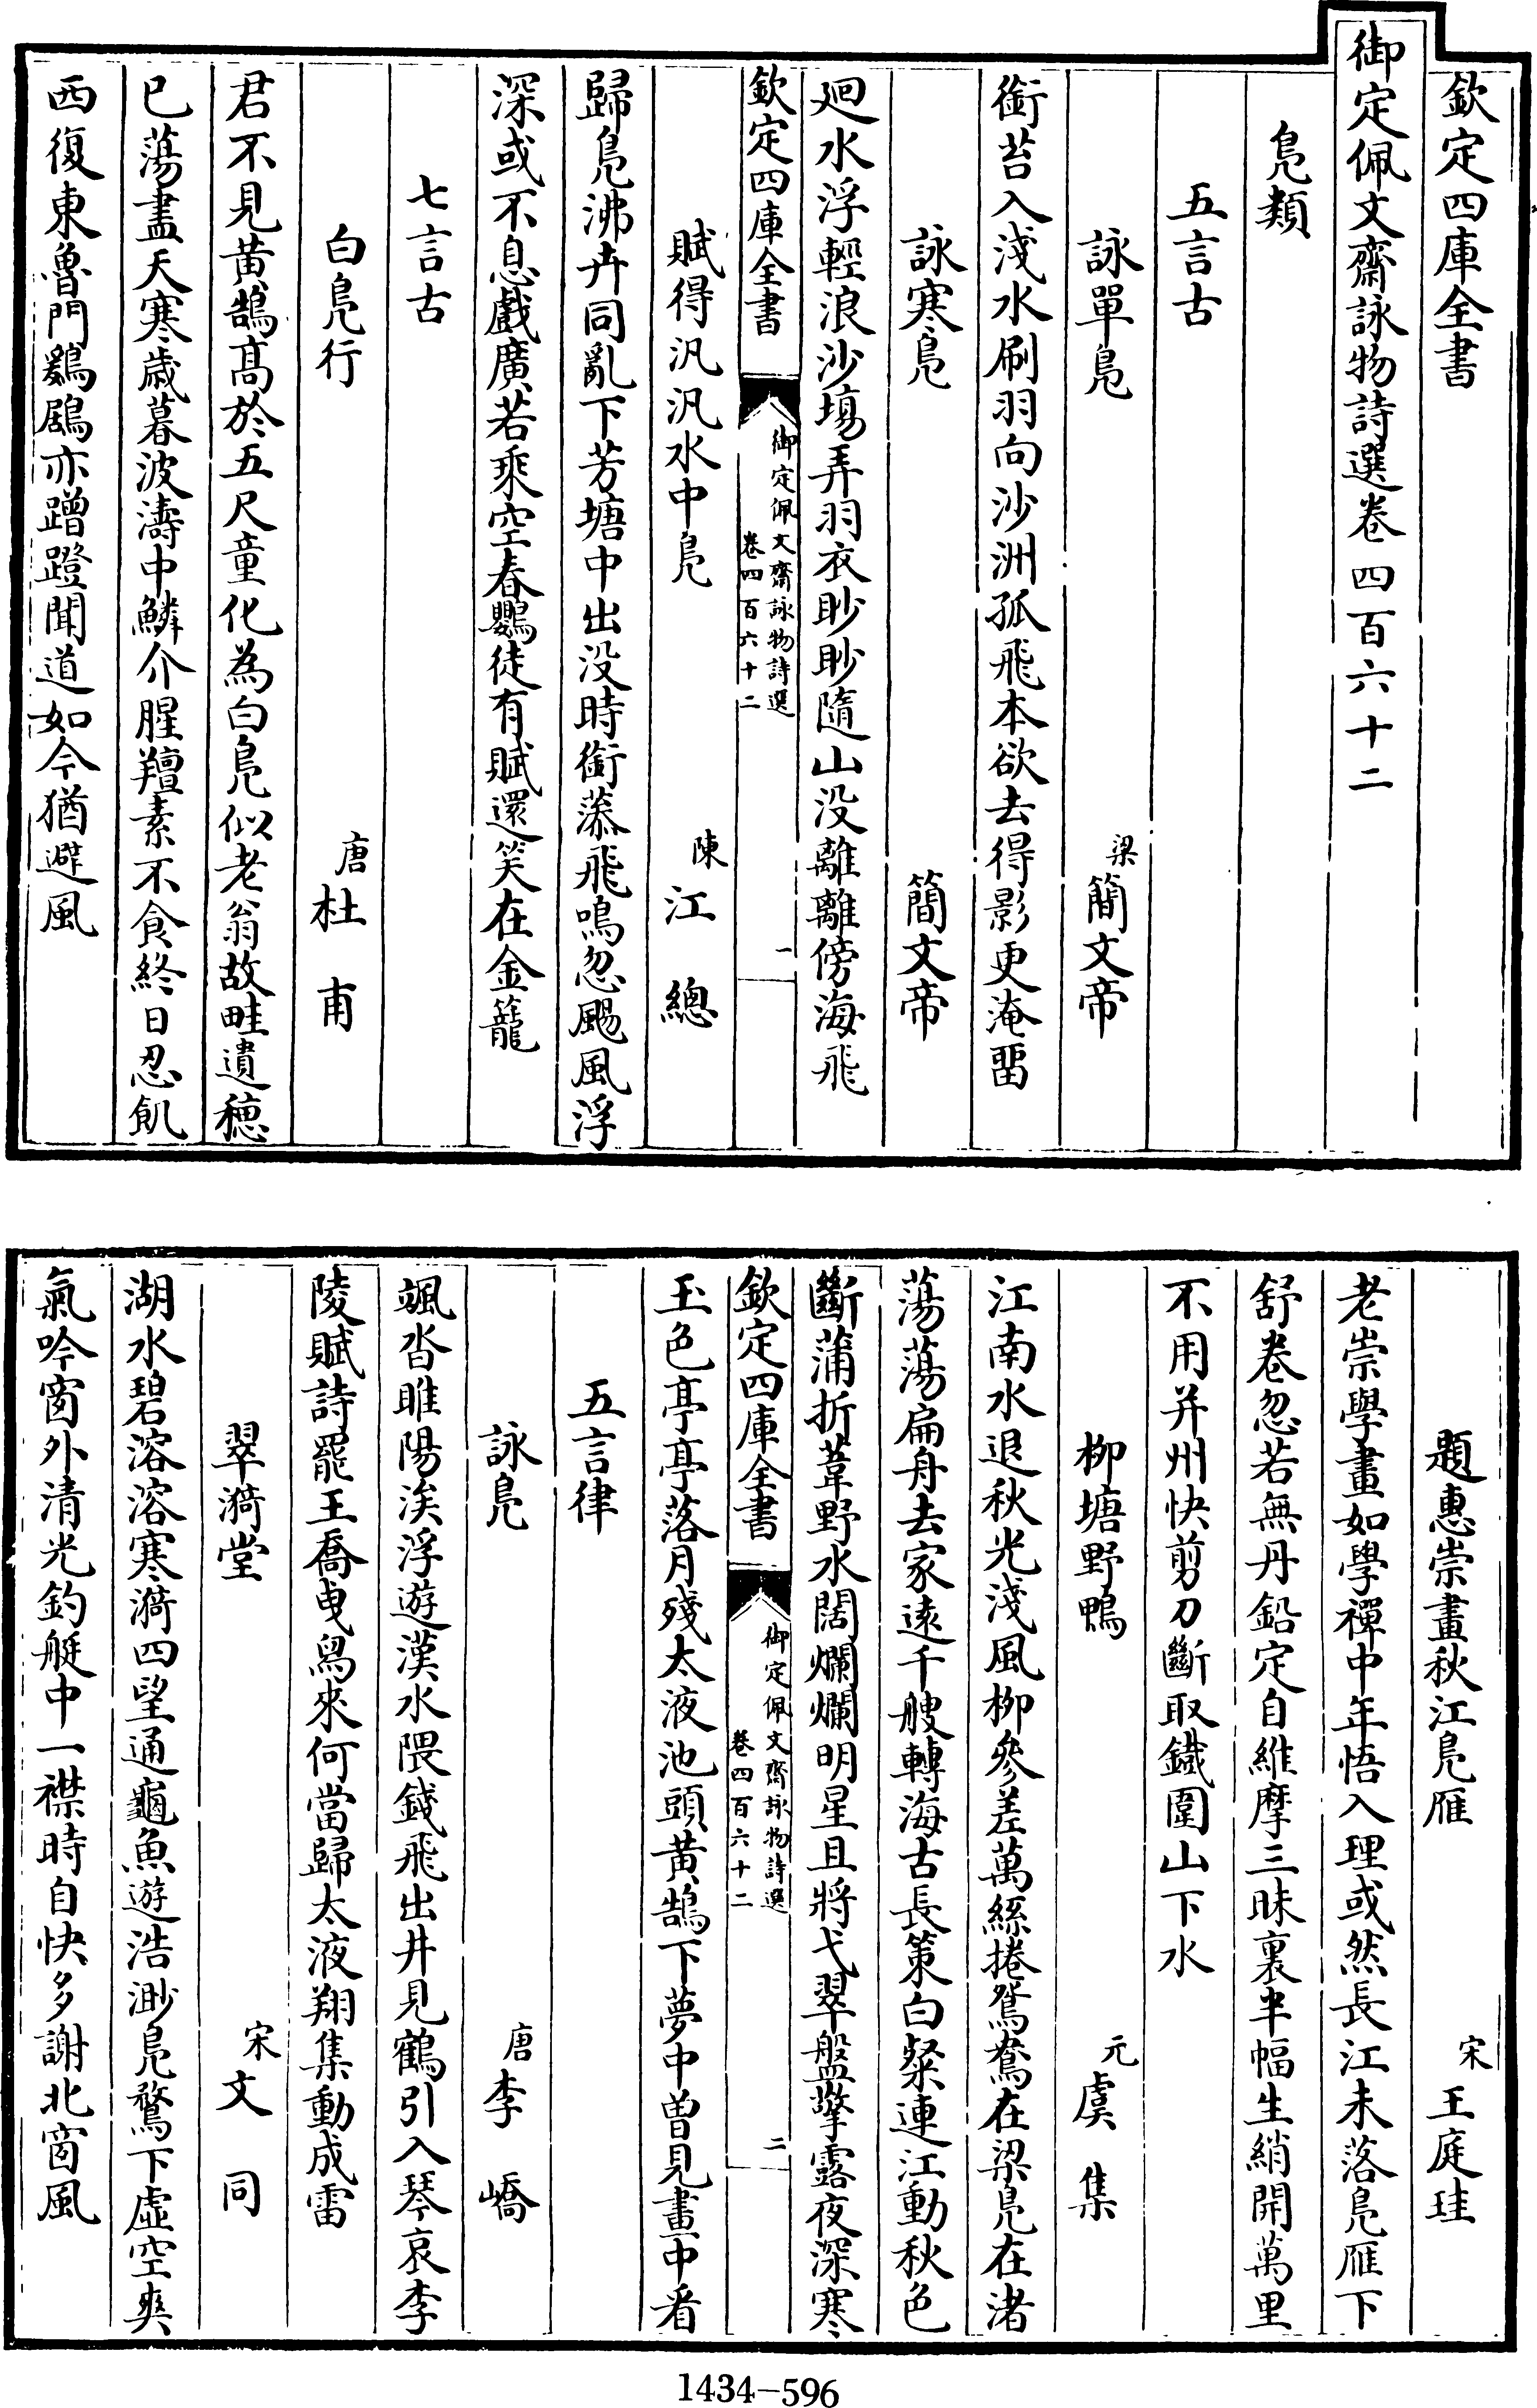 欽定四庫全書
御定佩文齋詠物詩選卷四百六十二
鳧類
五言古
詠單鳧 梁簡文帝
銜苔入淺水刷羽向沙洲孤飛本欲去得影更淹畱
詠寒鳧 簡文帝
廻水浮輕浪沙塲弄羽衣眇眇隨山没離離傍海飛
欽定四庫全書 御定佩文齋詠物詩選 卷四百六十二 一
賦得汎汎水中鳧 陳江總
歸鳧沸卉同亂下芳塘中出没時銜藻飛鳴忽颺風浮
深或不息戲廣若乘空春鸚徒有賦還笑在金籠
七言古
白鳧行 唐杜甫
君不見黄鵠髙於五尺童化為白鳧似老翁故畦遺穂
已蕩盡天寒歲暮波濤中鱗介腥羶素不食終日忍飢
西復東魯門鶢鶋亦蹭蹬聞道如今猶避風
題惠崇畫秋江鳧雁 宋王庭珪
老崇學畫如學禪中年悟入理或然長江未落鳧雁下
舒卷忽若無丹鉛定自維摩三昧裏半幅生綃開萬里
不用并州快剪刀斷取鐡圍山下水
柳塘野鴨 元虞集
江南水退秋光淺風柳參差萬絲捲鴛鴦在梁鳧在渚
蕩蕩扁舟去家遠千艘轉海古長策白粲連江動秋色
斷蒲折葦野水闊爛爛明星且將弋翠盤擎露夜深寒
欽定四庫全書 御定佩文齋詠物詩選 卷四百六十二 二
玉色亭亭落月殘太液池頭黄鵠下夢中曽見畫中看
五言律
詠鳧 唐李嶠
颯沓睢陽涘浮遊漢水隈錢飛出井見鶴引入琴哀李
陵賦詩罷王喬曳舄來何當歸太液翔集動成雷
翠漪堂 宋文同
湖水碧溶溶寒漪四望通龜魚遊浩渺鳧鶩下虛空爽
氣吟窗外清光釣艇中一襟時自快多謝北窗風
1434-596